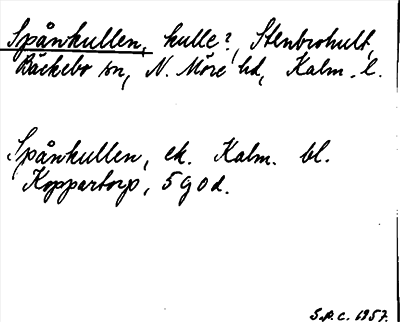 Spånkullen, kulle?, Stenbrohult,
Bäckebo sn, N. Möre hd, Kalm. l.
Spånkullen, ek. Kalm. bl.
Koppartorp, 5 g o d.
S.P.C. 1957.